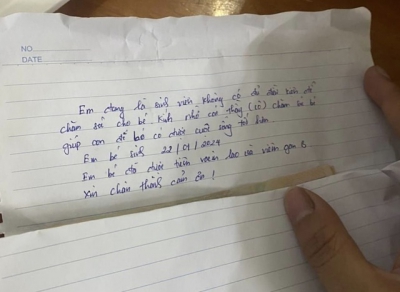 NO.
DATE
Em đang là sinh viên không có đủ điều kiện để
chăm sóc cho bé. Kính nhờ các thầy (cô) chăm lo bé
giúp con để bé có được cuộc sống tốt hơn
Em bé sinh 22/01/2024
Em bé đã được tiêm vacxin lao và viêm gan B.
Xin chân thành cảm ơn!